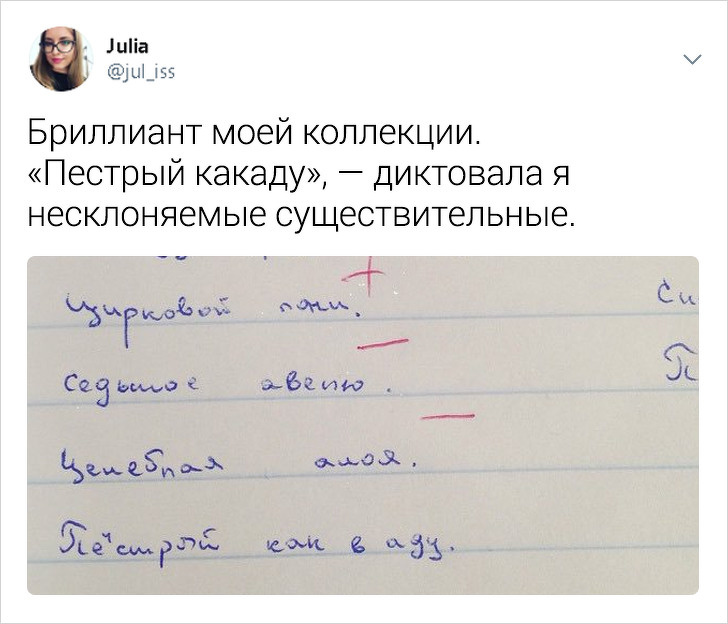 Julia
@jul_iss
Бриллиант моей коллекции.
«Пестрый какаду», — диктовала я
несклоняемые существительные.
Цирковой пони.
Си
седьмое авеню.
П
Целебная алоя.
Пёстрый как в аду.